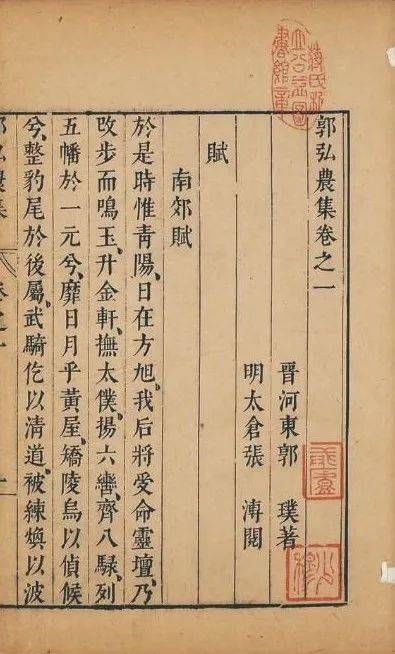 郭弘農集卷之一
晉河東郭 璞著
明太倉張 溥閱
賦
南郊賦
於是時惟青陽、日在方旭、我后將受命靈壇、乃
改步而鳴玉、升金軒、撫太僕、揚六鑾、齊八騄、列
五幡於一元兮、靡日月乎黃屋、矯陵烏以偵候
兮、整豹尾於後屬、武騎仡以清道、被練煥以波